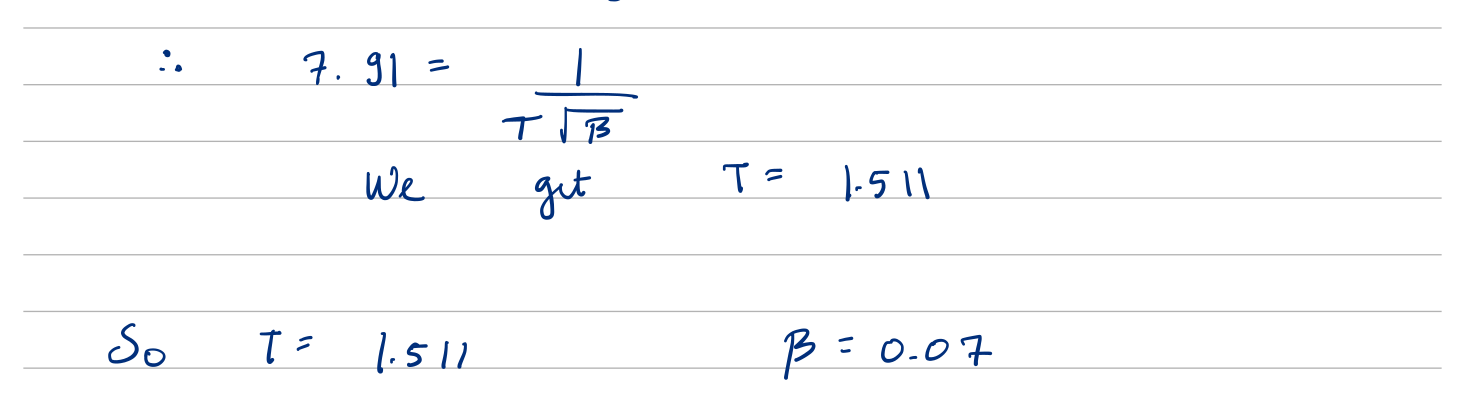 ∴ 7.91 = 1 / (T √β)
We get T = 1.511
So T = 1.511 β = 0.07